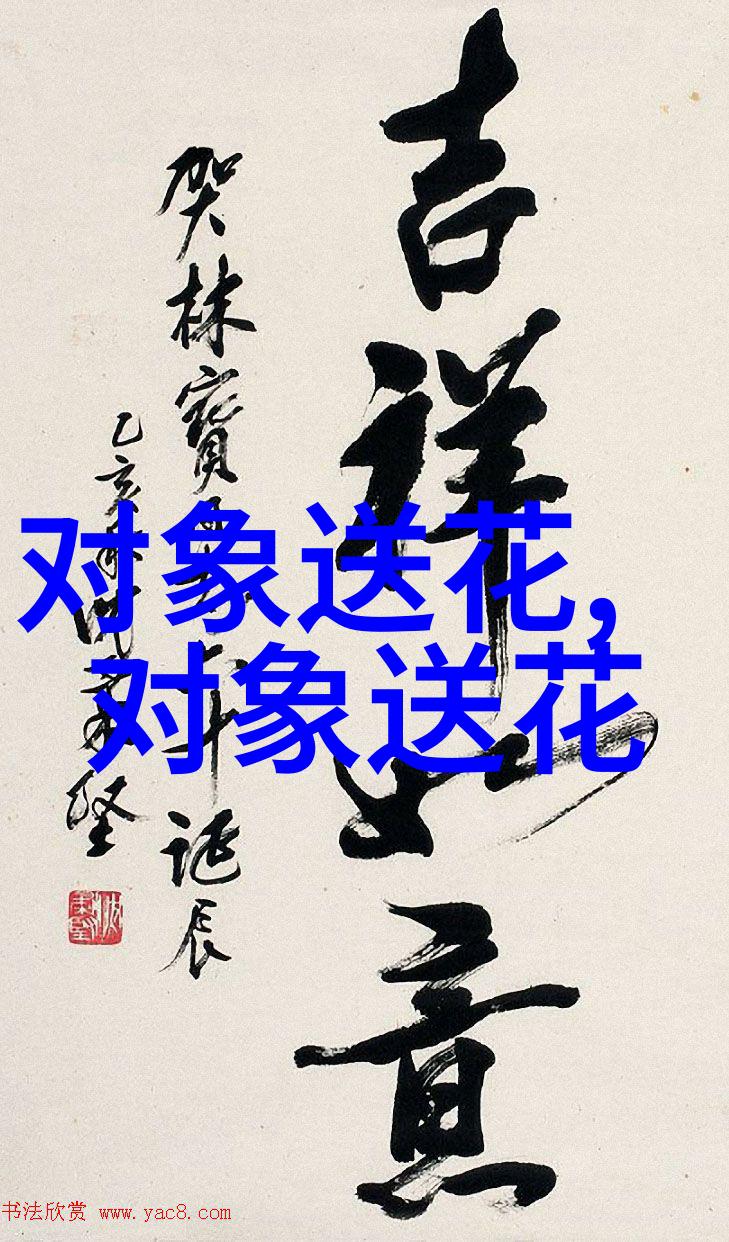 吉祥如意
贺林宝 诞辰
乙亥
对象送花,
对象送花
书法欣赏 www.yac8.com